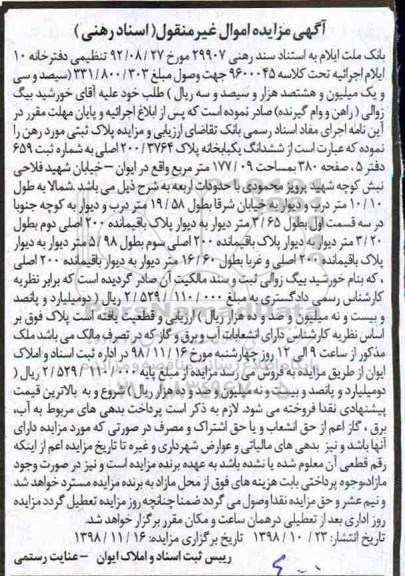 آگهی مزایده اموال غیرمنقول( اسناد رهنی )
بانک ملت ایلام به استناد سند رهنی ۲۹۹۰۷ مورخ ۹۲/۰۸/۲۷ تنظیمی دفترخانه ۱۰
ایلام اجرائیه تحت کلاسه ۹۶۰۰۰۴۵ جهت وصول مبلغ ۳۳۱/۸۰۰/۳۰۳ (سیصد و سی
و یک میلیون و هشتصد هزار و سیصد و سه ریال ) طلب خود علیه آقای خورشید بیگ
زوالی ( راهن و وام گیرنده) صادر نموده است که پس از ابلاغ اجرائیه و پایان مهلت مقرر در
آیین نامه اجرای مفاد اسناد رسمی بانک تقاضای ارزیابی و مزایده پلاک ثبتی مورد رهن را
نموده که عبارت است از ششدانگ یکبابخانه پلاک ۲۰۰/۳۷۶۴ اصلی به شماره ثبت ۶۵۹
دفتر ۵ ، صفحه ۳۸۰ بمساحت ۱۷۷/۰۹ متر مربع واقع در ایوان – خیابان شهید فلاحی
نبش کوچه شهید پرویز محمودی با حدودات اربعه به شرح ذیل می باشد .شمالا به طول
۱۰/۱۰ متر درب و دیوار به خیابان شرقا بطول ۱۹/۵۸ متر درب و دیوار به کوچه جنوبا
در سه قسمت اول بطول ۲/۶۵ متر دیوار به دیوار پلاک باقیمانده ۲۰۰ اصلی دوم بطول
۳/۲۰ متر دیوار به دیوار پلاک باقیمانده ۲۰۰ اصلی سوم بطول ۵/۹۸ متر دیوار به دیوار
پلاک باقیمانده ۲۰۰ اصلی و غربا بطول ۱۶/۶۰ متر دیوار به دیوار باقیمانده ۲۰۰ اصلی
، که بنام خورشید بیگ زوالی ثبت و سند مالکیت آن صادر گردیده است که برابر نظریه
کارشناس رسمی دادگستری به مبلغ ۲/۵۲۹/۱۱۰/۰۰۰ ریال ( دومیلیارد و پانصد
و بیست و نه میلیون و صد و ده هزار ریال ) ارزیابی و قطعیت یافته است پلاک فوق بر
اساس نظریه کارشناس دارای انشعابات آب و برق و گاز که در تصرف مالک می باشد ملک
مذکور از ساعت ۹ الی ۱۲ روز چهارشنبه مورخ ۹۸/۱۱/۱۶ در اداره ثبت اسناد و املاک
ایوان از طریق مزایده به فروش می رسد مزایده از مبلغ ۲/۵۲۹/۱۱۰/۰۰۰ ریال (
دومیلیارد و پانصد و بیست و نه میلیون و صد و ده هزار ریال ) شروع و به بالاترین قیمت
پیشنهادی نقدا فروخته می شود. لازم به ذکر است پرداخت بدهی های مربوط به آب،
برق ، گاز اعم از حق انشعاب و یا حق اشتراک و مصرف در صورتی که مورد مزایده دارای
آنها باشد و نیز بدهی های مالیاتی و عوارض شهرداری و غیره تا تاریخ مزایده اعم از اینکه
رقم قطعی آن معلوم شده یا نشده باشد به عهده برنده مزایده است و نیز در صورت وجود
مازاد،وجوه پرداختی بابت هزینه های فوق از محل مازاد به برنده مزایده مسترد خواهد شد
و نیم عشر و حق مزایده نقدا وصول می گردد ضمنا چنانچه روز مزایده تعطیل گردد مزایده
روز اداری بعد از تعطیلی درهمان ساعت و مکان مقرر برگزار خواهد شد.
تاریخ انتشار: ۲۳ / ۱۰ / ۱۳۹۸ تاریخ برگزاری مزایده: ۱۶ / ۱۱ / ۱۳۹۸
رییس ثبت اسناد و املاک ایوان – عنایت رستمی